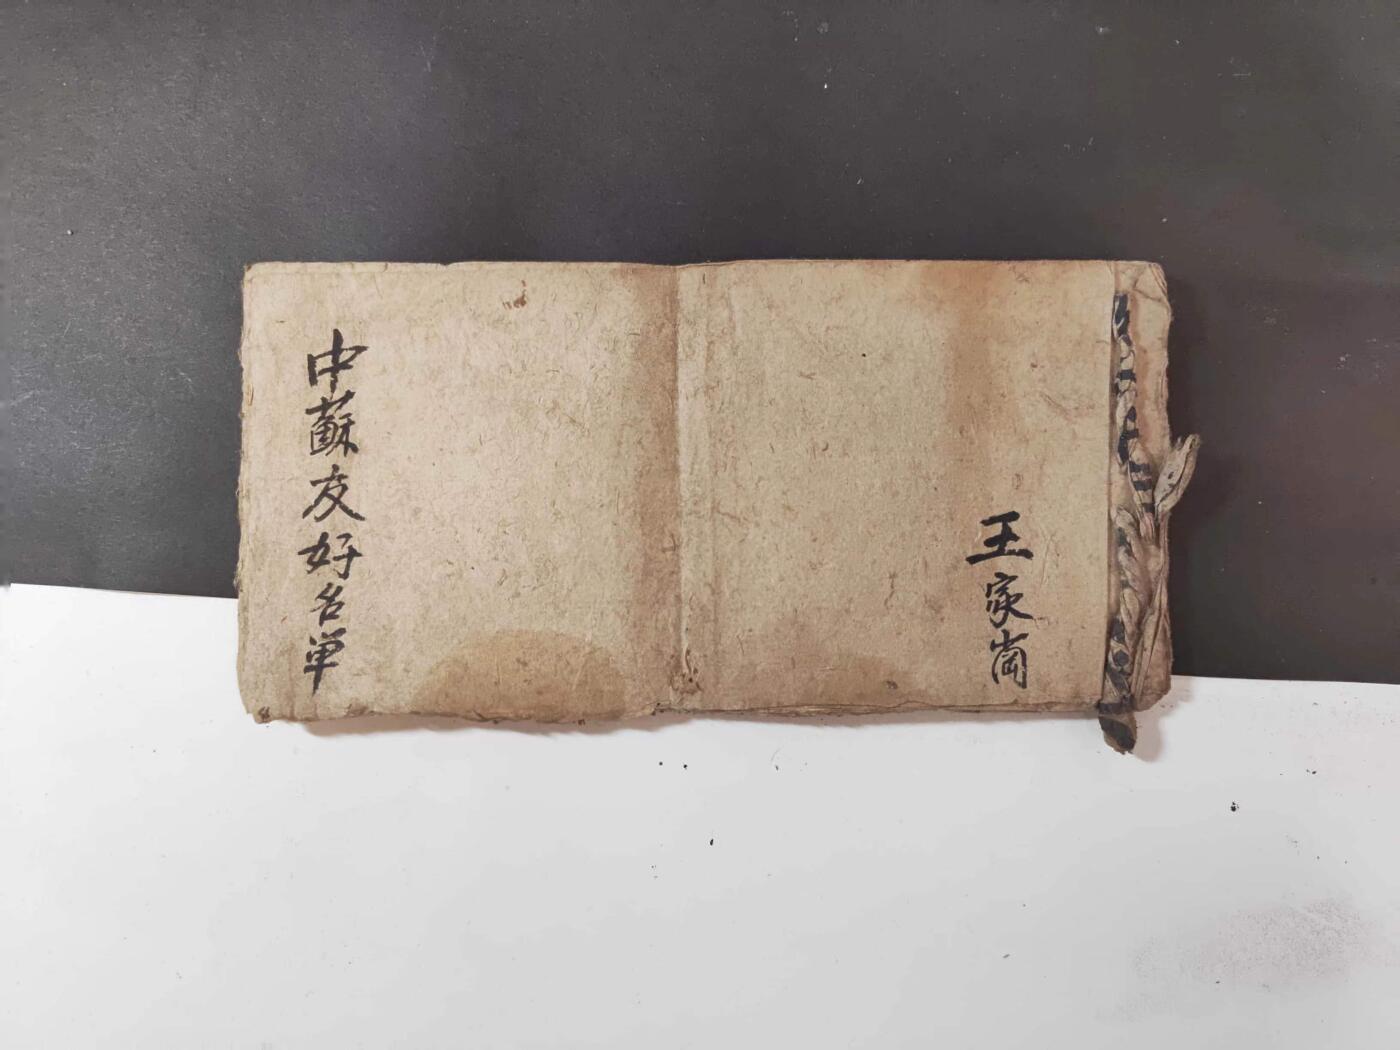 王家崗
中蘇友好名单